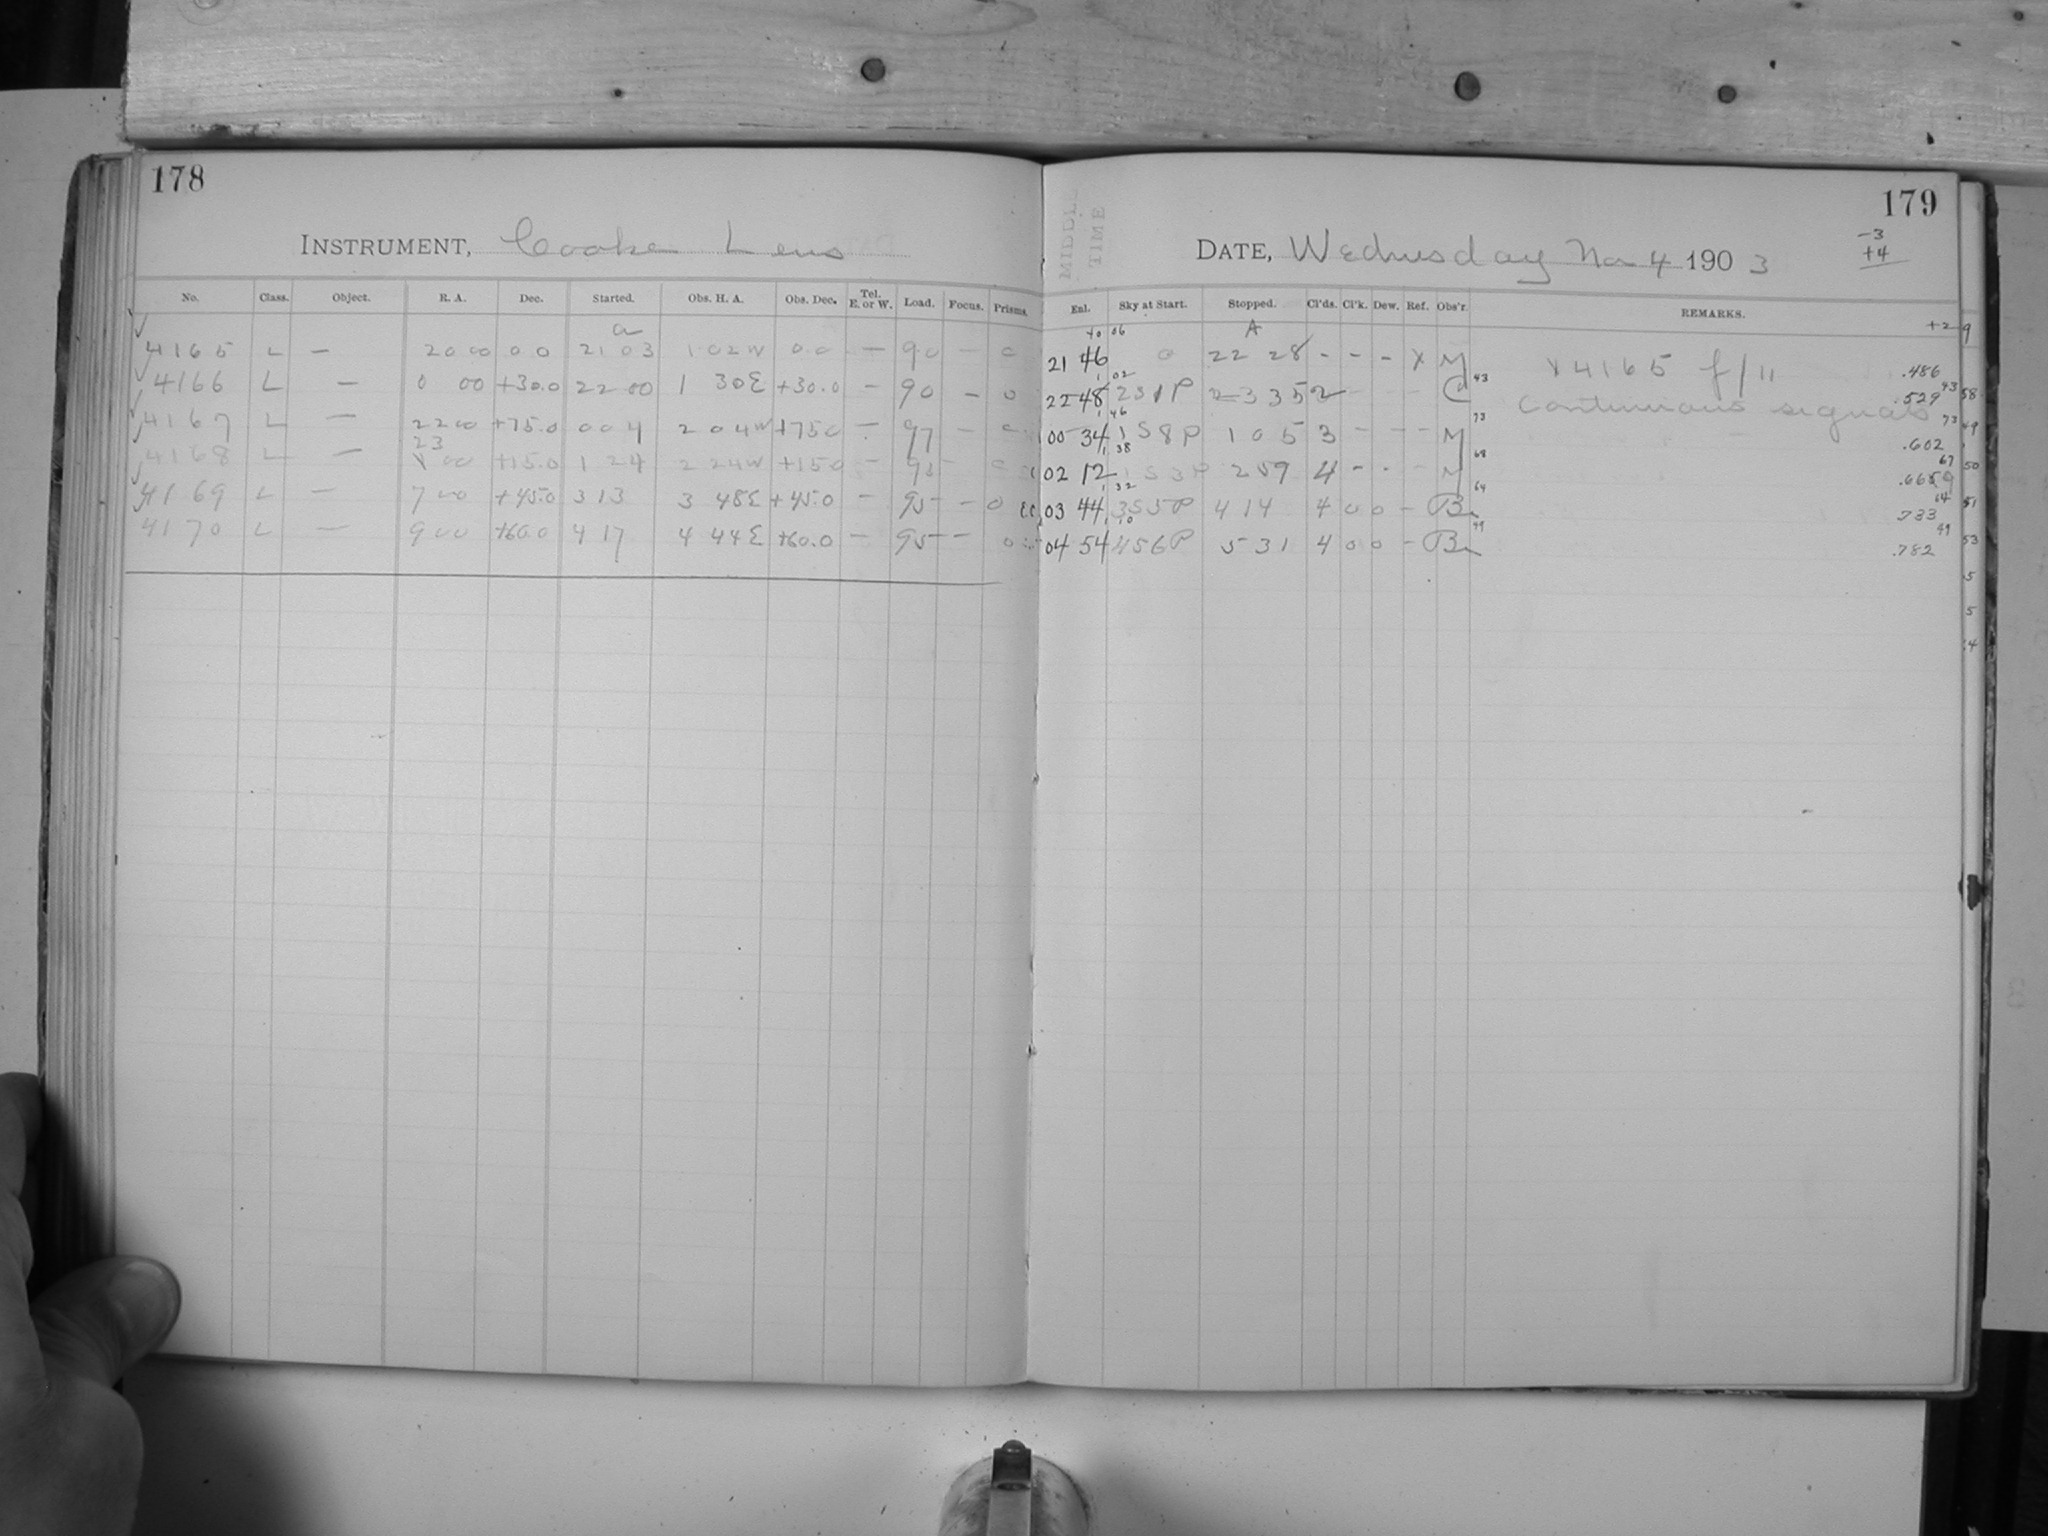 178
INSTRUMENT, Cooke Lens
No. Class. Object. R. A. Dec. Started. Obs. H. A. Obs. Dec. Tel. E. or W. Load. Focus. Prisms.
a
4165 L — 20 00 0.0 21 03 1 02W 0.0 — 90 — 0
4166 L — 0 00 +30.0 22 00 1 30E +30.0 — 90 — 0
4167 L — 22 00 +75.0 0 04 2 04W +75.0 — 97 — 0
23
4168 L — 00 +15.0 1 24 2 24W +15.0 — 95 0
4169 L — 7 00 +45.0 3 13 3 48E +45.0 — 95 — 0
4170 L — 9 00 +60.0 4 17 4 44E +60.0 — 95 — 0
179
MIDDL
TIME
DATE, Wednesday Nov 4 1903
-3
+4
Enl. Sky at Start. Stopped. Cl'ds. Cl'k. Dew. Ref. Obs'r. REMARKS.
06 A +2
21 46 0 22 28 - - - X M X4165 f/11 .486
1 02 43 43
22 48 231P 23 35 2 - - - C Continuous signals .529
1 46 73 73
00 34 158P 1 05 3 - - - M .602
1 38 68 67
02 12 153P 2 59 4 - - - M .669
1 32 64 64
03 44 355P 4 14 4 0 0 - B .733
1 10 49 49
04 54 456P 5 31 4 0 0 - B .782